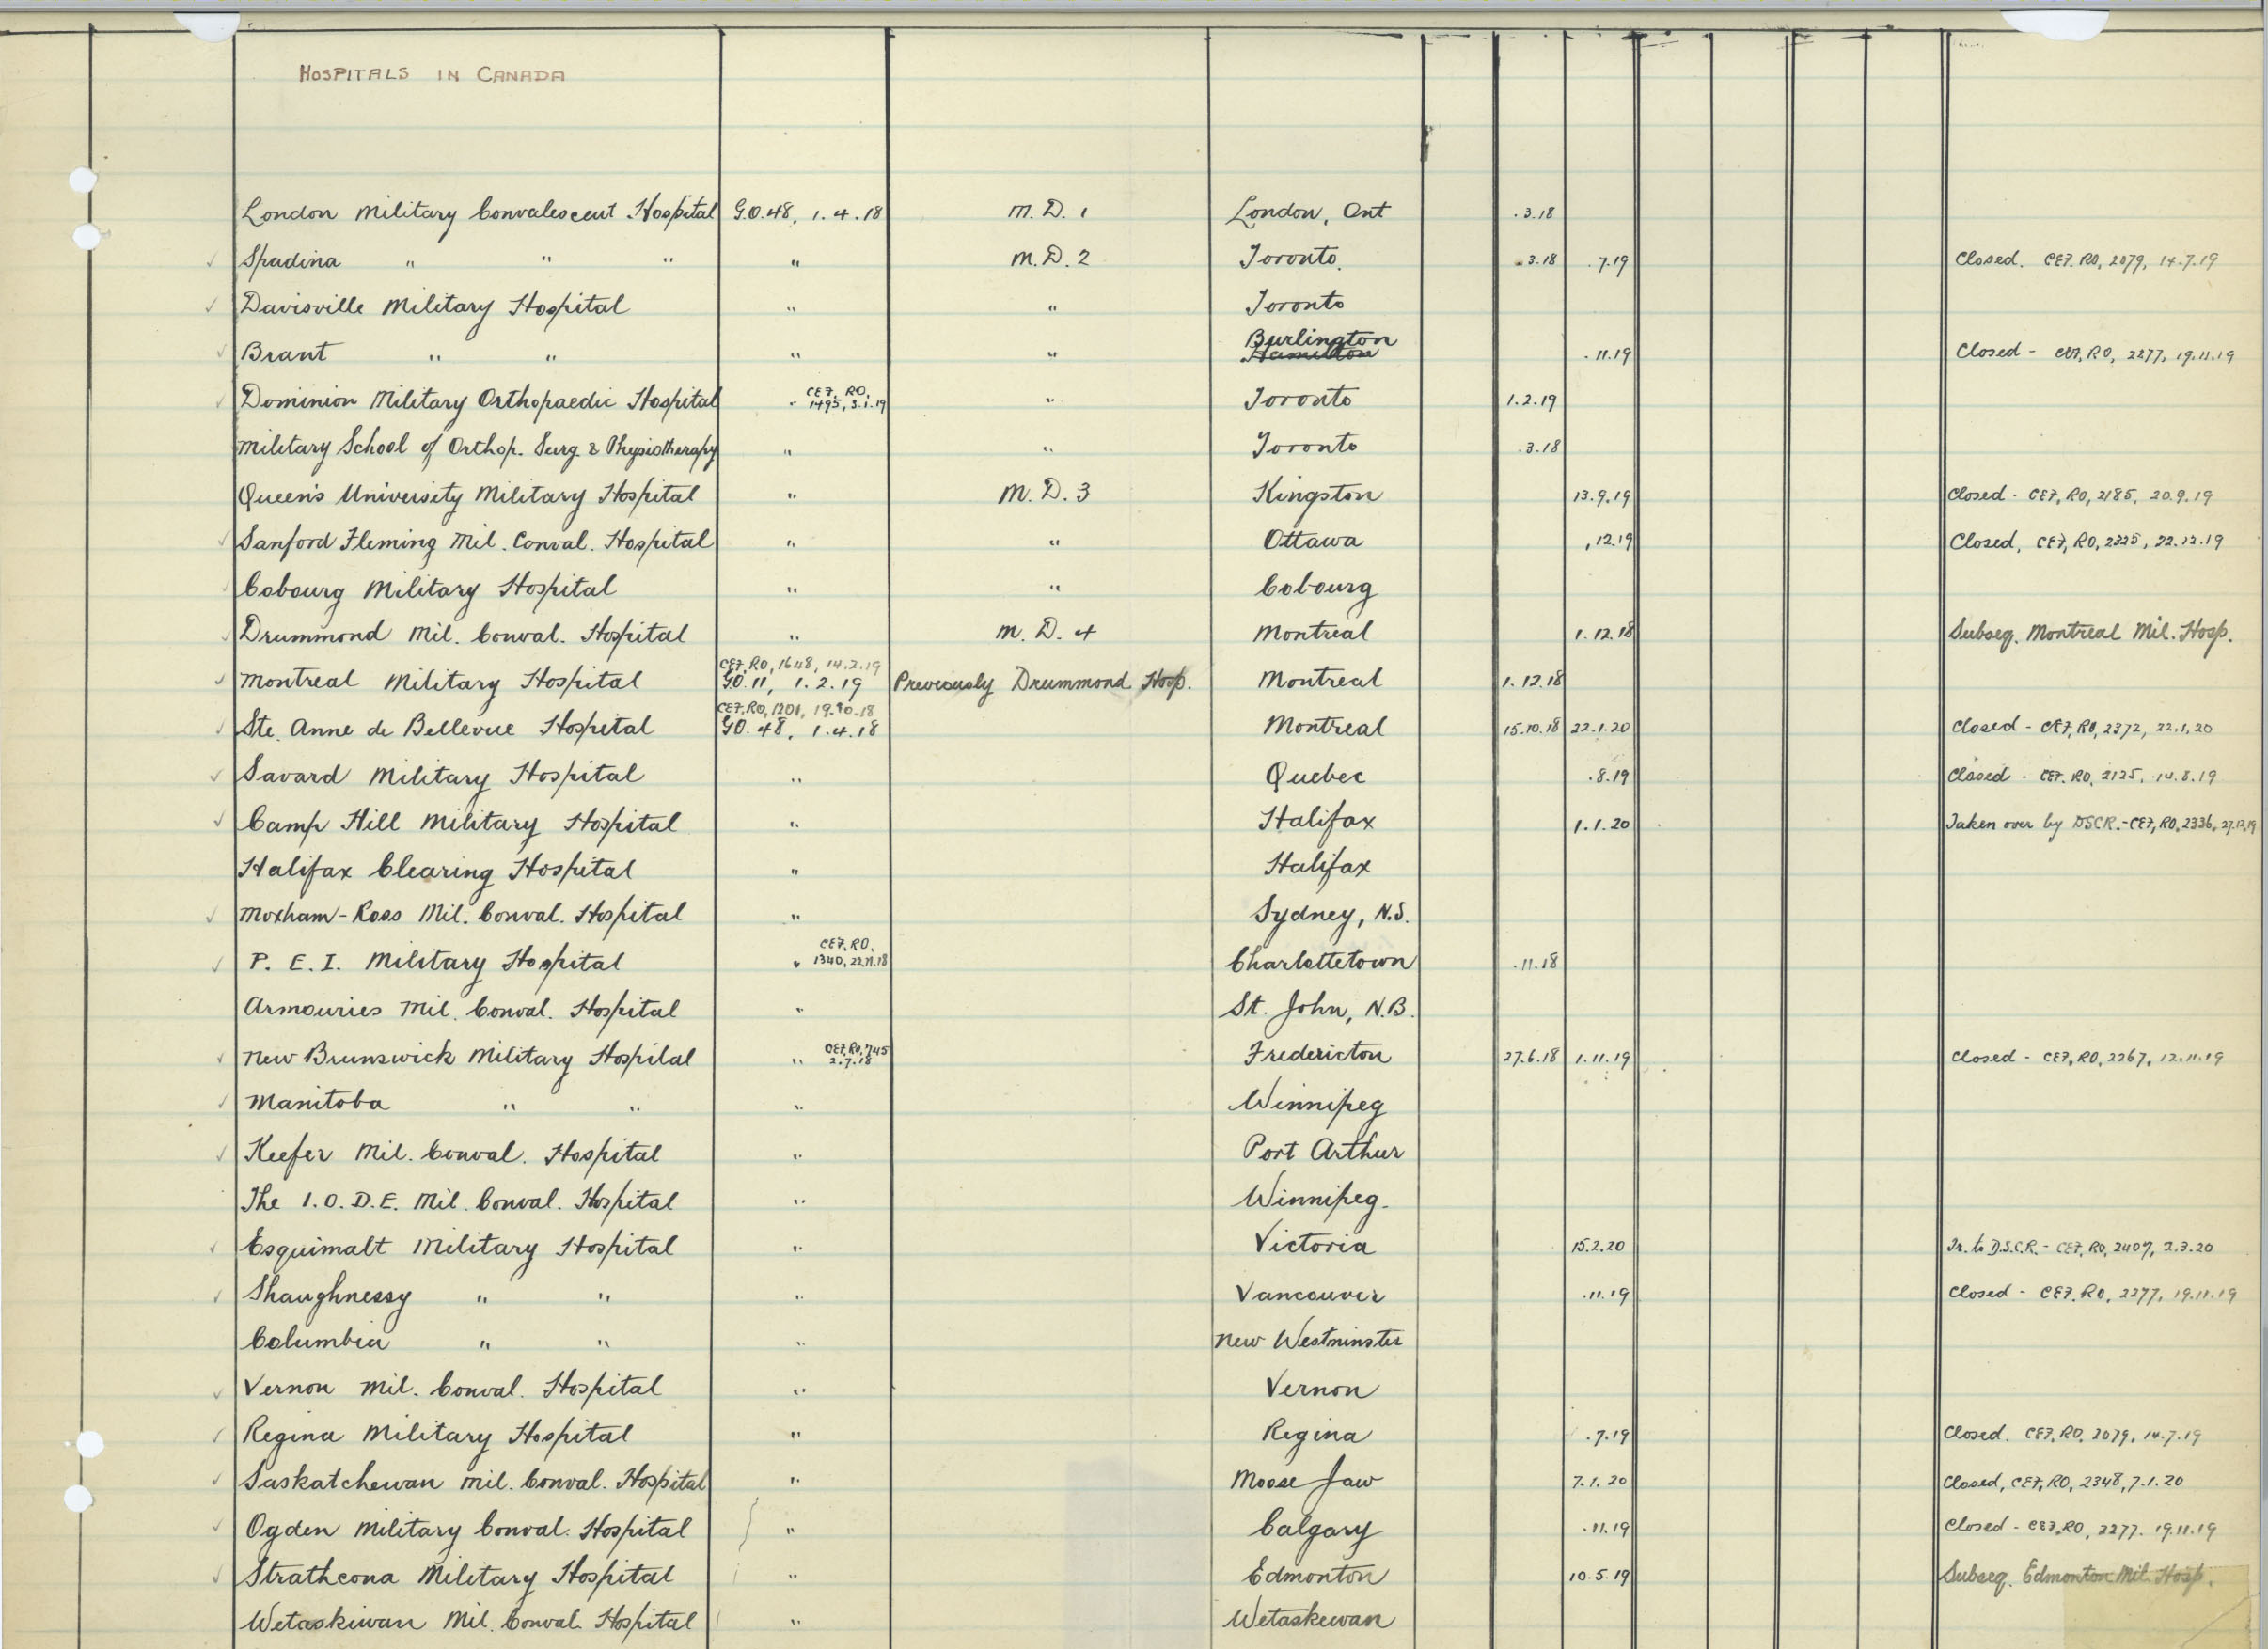 HOSPITALS IN CANADA
London Military Convalescent Hospital G.O.48, 1.4.18 M.D. 1 London, Ont .3.18
Spadina " " " " M.D. 2 Toronto. .3.18 .7.19 Closed. CEF. RO, 2079, 14.7.19
Davisville Military Hospital " " Toronto
Burlington
Brant " " " " Hamilton .11.19 Closed - CEF, RO, 2277, 19.11.19
CEF, RO,
Dominion Military Orthopaedic Hospital " 1495, 3.1.19 " Toronto 1.2.19
Military School of Orthop. Surg & Physiotherapy " " Toronto .3.18
Queen's University Military Hospital " M.D. 3 Kingston 13.9.19 Closed - CEF, RO, 2185, 20.9.19
Sanford Fleming Mil. Conval. Hospital " " Ottawa .12.19 Closed, CEF, RO, 2325, 22.12.19
Cobourg Military Hospital " " Cobourg
Drummond Mil. Conval. Hospital " M.D. 4 Montreal 1.12.18 Subseq. Montreal Mil. Hosp.
CEF, RO, 1648, 14.2.19
Montreal Military Hospital GO. 11, 1.2.19 Previously Drummond Hosp. Montreal 1.12.18
CEF, RO, 1201, 19.10.18
Ste. Anne de Bellevue Hospital GO. 48, 1.4.18 Montreal 15.10.18 22.1.20 Closed - CEF, RO, 2372, 22.1.20
Savard Military Hospital " Quebec .8.19 Closed - CEF. RO, 2125, 14.8.19
Camp Hill Military Hospital " Halifax 1.1.20 Taken over by DSCR. - CEF, RO, 2336, 27.12.19
Halifax Clearing Hospital " Halifax
Moxham-Ross Mil. Conval. Hospital " Sydney, N.S.
CEF, RO,
P. E. I. Military Hospital " 1340, 22.11.18 Charlottetown .11.18
Armouries Mil. Conval. Hospital " St. John, N.B.
CEF, RO, 745
New Brunswick Military Hospital " 2.7.18 Fredericton 27.6.18 1.11.19 Closed - CEF, RO, 2267, 12.11.19
Manitoba " " " Winnipeg
Keefer Mil. Conval. Hospital " Port Arthur
The I.O.D.E. Mil. Conval. Hospital " Winnipeg.
Esquimalt Military Hospital " Victoria 15.2.20 Tr. to D.S.C.R. - CEF, RO, 2407, 2.3.20
Shaughnessy " " " Vancouver .11.19 Closed - CEF. RO, 2277, 19.11.19
Columbia " " " New Westminster
Vernon Mil. Conval. Hospital " Vernon
Regina Military Hospital " Regina .7.19 Closed. CEF, RO, 2079, 14.7.19
Saskatchewan Mil. Conval. Hospital " Moose Jaw 7.1.20 Closed, CEF, RO, 2348, 7.1.20
Ogden Military Conval. Hospital " Calgary .11.19 Closed - CEF, RO, 2277. 19.11.19
Strathcona Military Hospital " Edmonton 10.5.19 Subseq. Edmonton Mil. Hosp.
Wetaskiwan Mil. Conval. Hospital " Wetaskewan